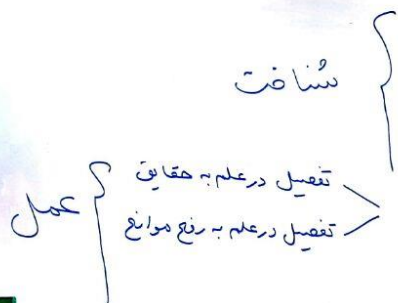 شناخت
تفصیل در علم به حقایق
تفصیل در علم به رفع موانع
عمل